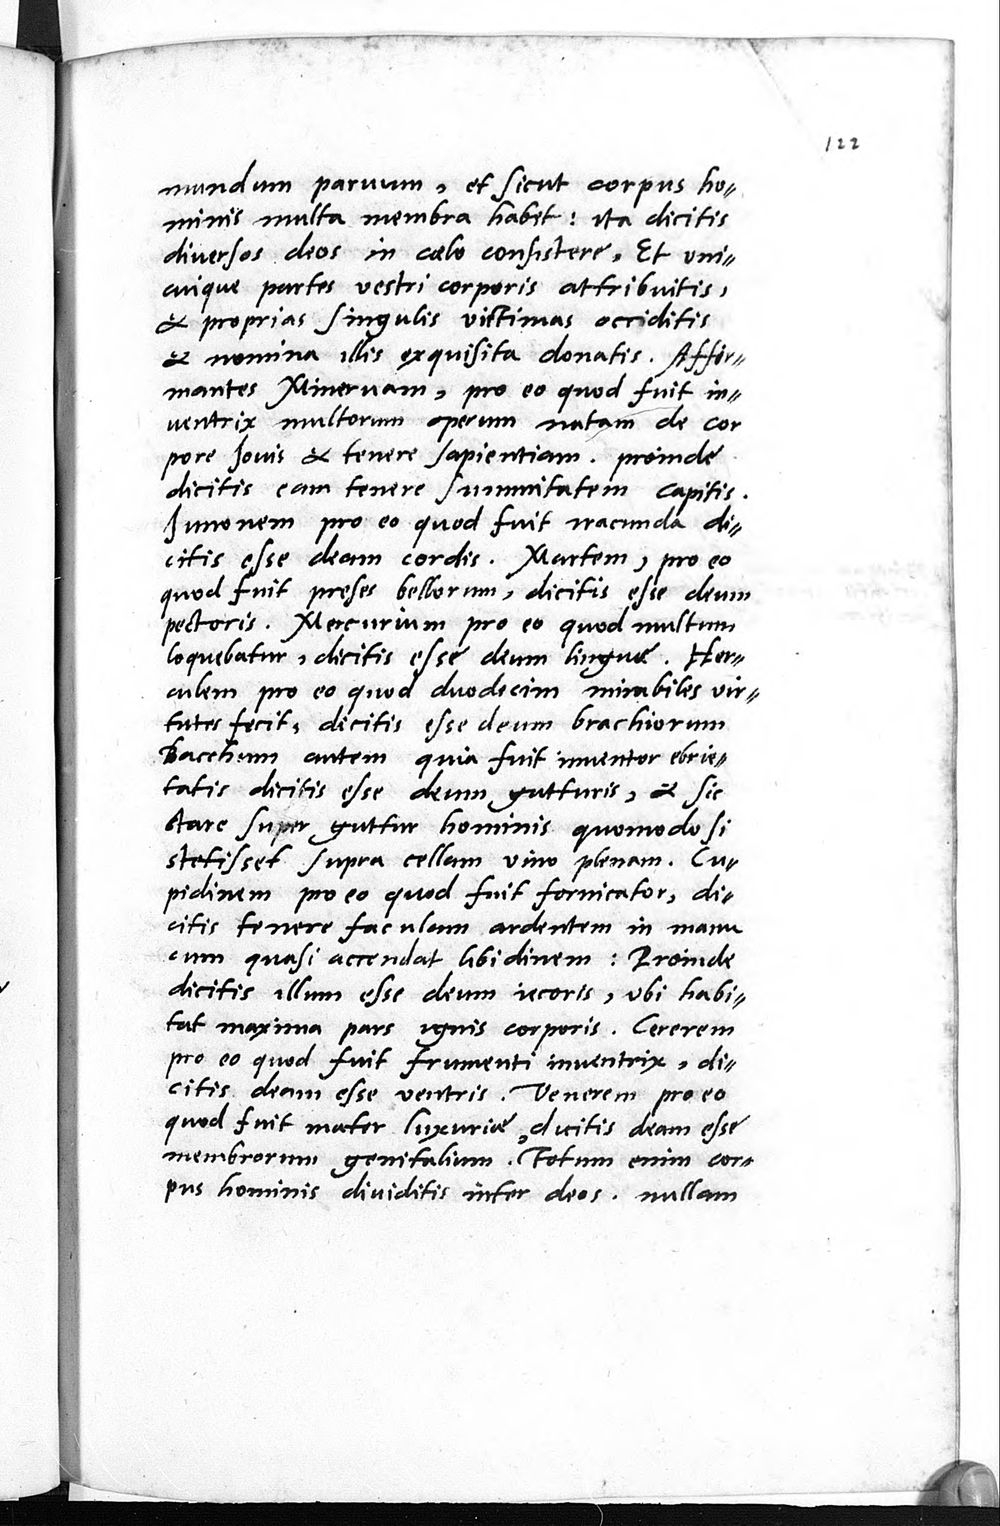 122
mundum paruum, et sicut corpus ho„
minis multa membra habet: ita dicitis
diuersos deos in cœlo consistere, Et vni„
cuique partes vestri corporis attribuitis,
& proprias singulis victimas occiditis
& nomina illis exquisita donatis. Affir„
mantes Mineruam, pro eo quod fuit in„
uentrix multorum operum natam de cor
pore Iouis & tenere sapientiam. proinde
dicitis eam tenere summitatem capitis.
Iunonem pro eo quod fuit iracunda di„
citis esse deam cordis. Martem, pro eo
quod fuit preses bellorum, dicitis esse deum
pectoris. Mercurium pro eo quod multum
loquebatur, dicitis esse deum linguæ. Her„
culem pro eo quod duodecim mirabiles vir„
tutes fecit, dicitis esse deum brachiorum
Bacchum autem quia fuit inuentor ebrie„
tatis dicitis esse deum gutturis, & sic
stare super guttur hominis quomodo si
stetisset supra cellam vino plenam. Cu„
pidinem pro eo quod fuit fornicator, di„
citis tenere faculam ardentem in manu
cum quasi accendat libidinem: Proinde
dicitis illum esse deum iecoris, vbi habi„
tat maxima pars ignis corporis. Cererem
pro eo quod fuit frumenti inuentrix, di„
citis deam esse ventris. Venerem pro eo
quod fuit mater luxuriæ, dicitis deam esse
membrorum genitalium. Totum enim cor„
pus hominis diuiditis inter deos. nullam